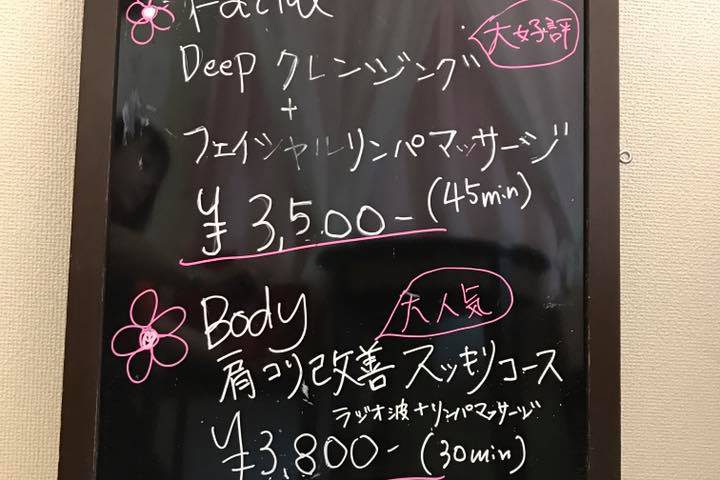 Facial
大好評
Deep クレンジング
+
フェイシャルリンパマッサージ
¥3,500- (45min)
Body
大人気
肩コリ改善 スッキリコース
ラジオ波+リンパマッサージ
¥3,800- (30min)